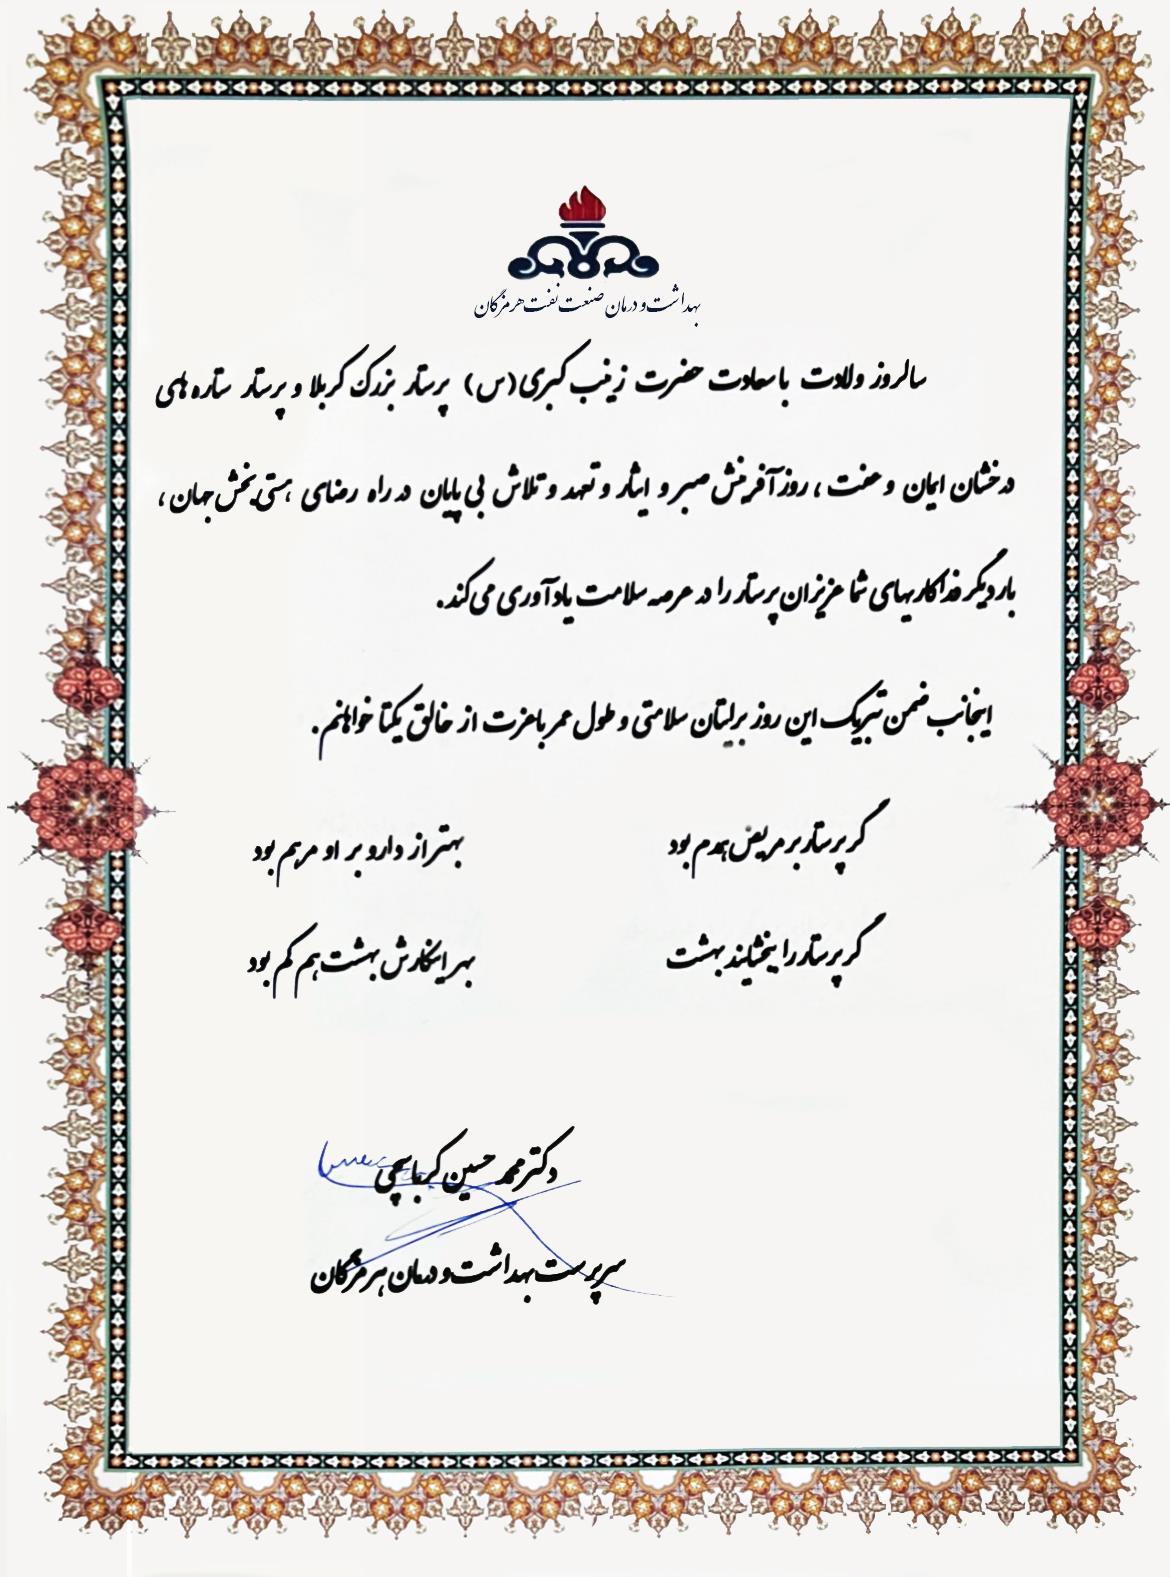 بهداشت و درمان صنعت نفت هرمزگان
سالروز ولادت با سعادت حضرت زینب کبری (س) پرستار بزرگ کربلا و پرستار ستاره های
درخشان ایمان و عفت ، روز آفرینش صبر و ایثار و تعهد و تلاش بی پایان در راه رضای هستی بخش جهان ،
بار دیگر فداکاریهای شما عزیزان پرستار را در عرصه سلامت یادآوری می کند.
اینجانب ضمن تبریک این روز برایتان سلامتی و طول عمر با عزت از خالق یکتا خواهانم.
گر پرستار بر مریض همدم بود بهتر از دارو بر او مرهم بود
گر پرستار را ببخشایند بهشت بهر اینکارش بهشت هم کم بود
دکتر محمد حسین کرباسچی
سرپرست بهداشت و درمان هرمزگان